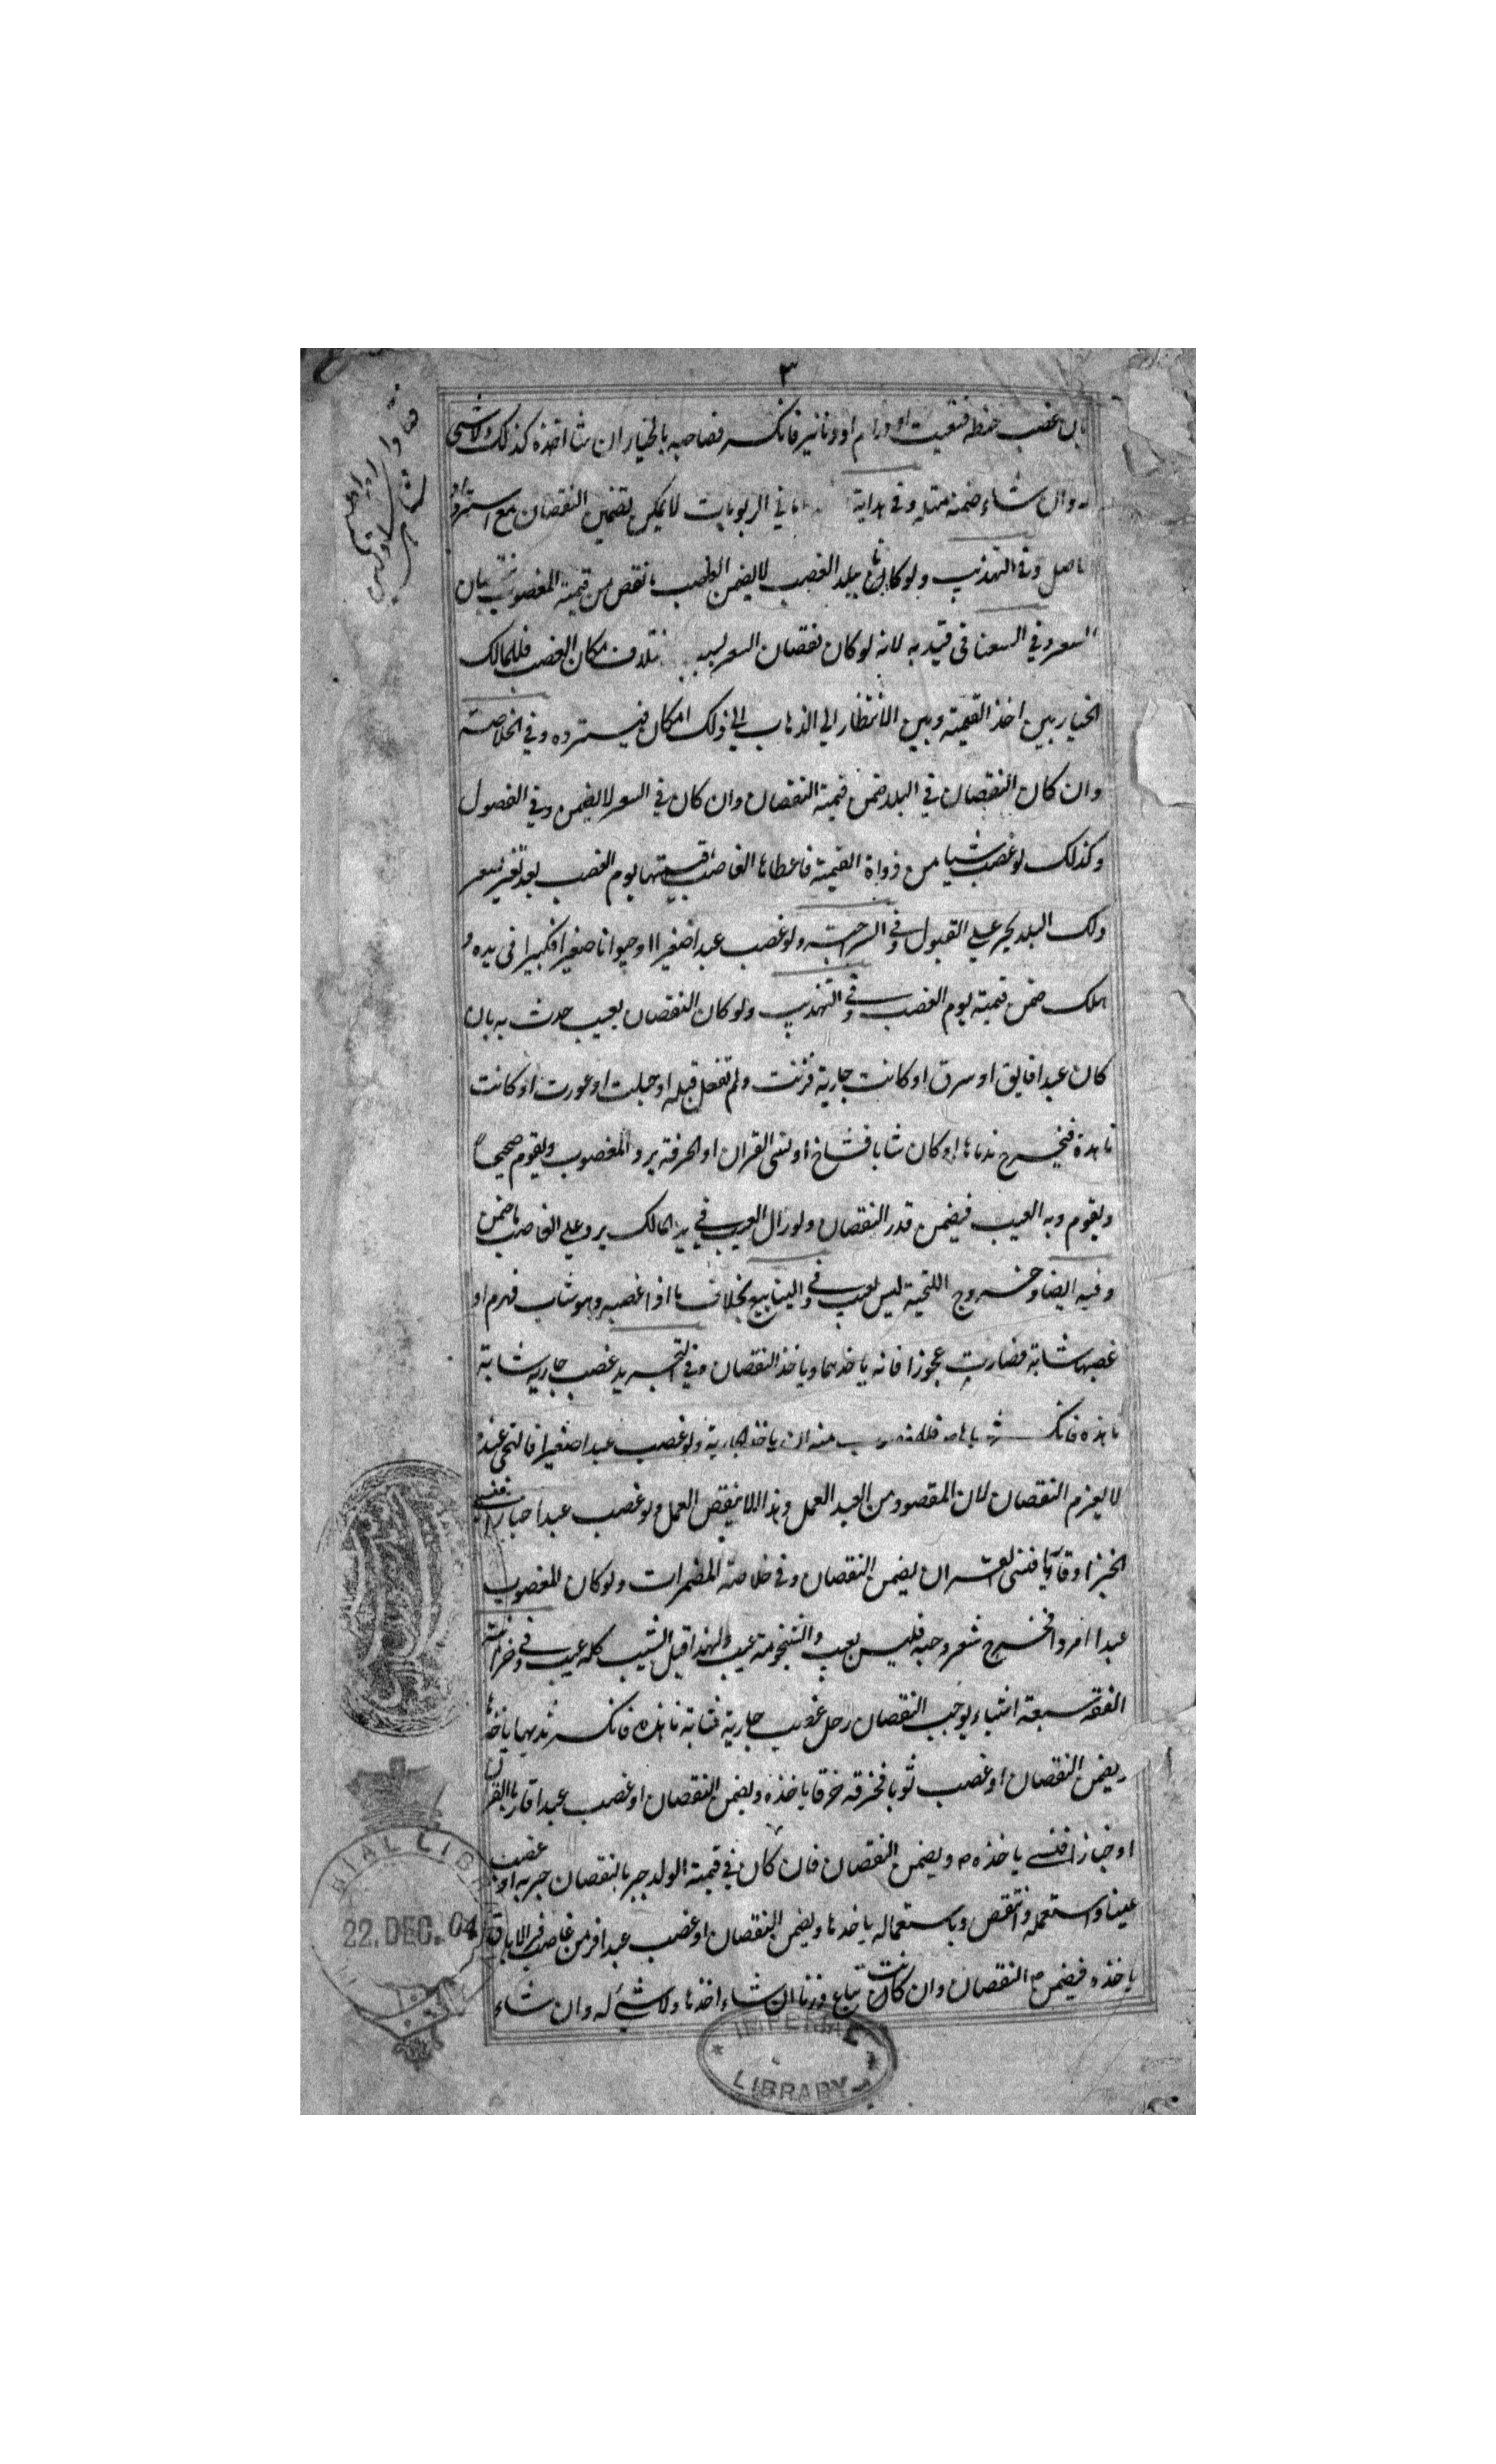 ٣
بان غصب حنطة فتعيبت او دراهم او دنانير فانكسر فصاحبه بالخيار ان شا اخذه كذلك ولا شى
له وان شاء ضمنه مثله وفى هداية اما في الربويات لا يمكن تضمين النقصان مع استرداد
الاصل وفى التهذيب ولو كانا ببلد الغصب لا يضمن الغاصب ما نقص من قيمة المغصوب
السعر وفي السغناقى قيد به لانه لو كان نقصان السعر بسبب مكان الغصب فللمالك
الخيار بين اخذ القيمة وبين الانتظار الي الذهاب الي ذلك المكان فيسترده وفي الخلاصة
وان كان النقصان في البلد ضمن قيمة النقصان وان كان في السعر لا يضمن وفي الفصول
وكذلك لو غصب شيا من ذواة القيمة فاعطاها الغاصب قيمتها يوم الغصب بعد تغير سعر
ذلك البلد يجبر علي القبول وفى السراجية ولو غصب عبدا صغيرا او حيوانا صغيرا فكبيرا فى يده و
هلك ضمن قيمته يوم الغصب وفي التهذيب ولو كان النقصان بعيب حدث به بان
كان عبدا فابق او سرق او كانت جارية فزنت ولم تفعل قبله او حبلت او عورت او كانت
ناهدة فيخرج ثدياها او كان شابا فشاخ او نسى القران او الحرفة يرد المغصوب ويقوم صحيحا
ويقوم وبه العيب فيضمن قدر النقصان ولو زال العيب في يد المالك يرد علي الغاصب ما ضمن
وفيه ايضا وخروج اللحية ليس بعيب وفي الينابيع بخلاف ما اذا غصبه وهو شاب فهرم او
غصبها شابة فصارت عجوزا فانه ياخذهما وياخذ النقصان وفي التجريد غصب جارية شابة
ناهدة فانكسر ثدياها فللمغصوب منه ان ياخذ الجارية ولو غصب عبدا صغيرا فالتحى عنده
لا يغرم النقصان لان المقصود من العبد العمل وهذا لا ينقص العمل ولو غصب عبدا خبازا فنسي
الخبز او قاريا فنسى القران يضمن النقصان وفي خلاصة المضمرات ولو كان المغصوب
عبدا امرد فخرج شعر وجهه فليس بعيب والشيخوخة عيب ولهذا قيل الشيب كله عيب وفي خزانة
الفقه سبعة اشياء يوجب النقصان رجل غصب جارية شابة ناهدة فانكسر ثديها ياخذها
ويضمن النقصان او غصب ثوبا فخرقه خرقا ياخذه ويضمن النقصان او غصب عبدا قاريا القران
او خبازا فنسي ياخذه ويضمن النقصان فان كان في قيمة الولد جبر بالنقصان جبر به او غصب
عينا واستعمله وانتقص باستعماله ياخذها ويضمن النقصان او غصب عبدا فر من غاصب في الاباق
ياخذه فيضمن النقصان وان كانت تباع وزنا ان شاء اخذها ولا شئ له وان شاء
22. DEC. 04
IMPERIAL
LIBRARY